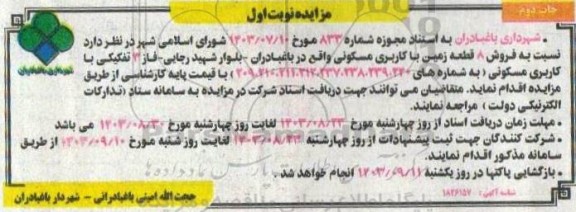 چاپ دوم
مزایده نوبت اول
شهرداری باغبادران
• شهرداری باغبادران به استناد مجوزه شماره ۸۳۳ مورخ ۱۴۰۳/۰۷/۱۰ شورای اسلامی شهر در نظر دارد
نسبت به فروش ۸ قطعه زمین با کاربری مسکونی واقع در باغبادران -بلوار شهید رجایی-فاز ۳ تفکیکی با
کاربری مسکونی (به شماره های ۲۰۹،۲۱۰،۲۱۱،۲۱۲،۲۳۷،۲۳۸،۲۳۹،۲۴۰) با قیمت پایه کارشناسی از طریق
مزایده اقدام نماید. متقاضیان می توانند جهت دریافت اسناد شرکت در مزایده به سامانه ستاد (تدارکات
الکترونیکی دولت) مراجعه نمایند.
• مهلت زمان دریافت اسناد از روز چهارشنبه مورخ ۱۴۰۳/۰۸/۲۳ لغایت روز چهارشنبه مورخ ۱۴۰۳/۰۸/۳۰ می باشد
• شرکت کنندگان جهت ثبت پیشنهادات از روز چهارشنبه ۱۴۰۳/۰۸/۲۳ لغایت روز شنبه مورخ ۱۴۰۳/۰۹/۱۰ از طریق
سامانه مذکور اقدام نمایند.
• بازگشایی پاکتها در روز یکشنبه ۱۴۰۳/۰۹/۱۱ انجام خواهد شد.
شناسه آگهی: ۱۸۲۶۱۵۷
حجت الله امینی باغبادرانی - شهردار باغبادران